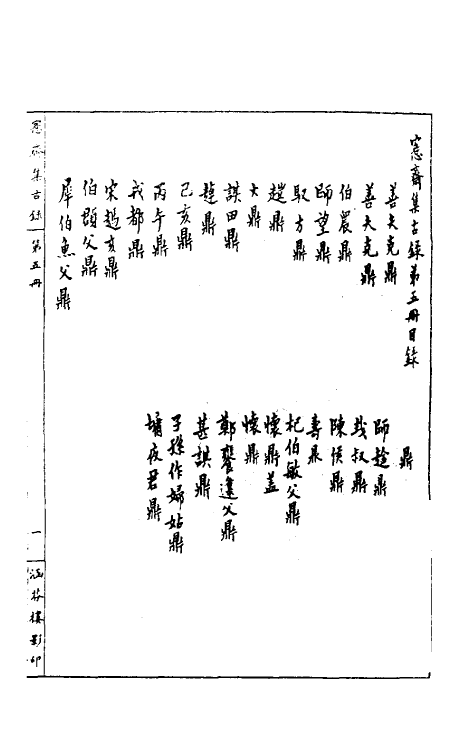 愙齋集古錄第五冊目錄
善夫克鼎
善夫克鼎
伯晨鼎
師望鼎
取方鼎
趞鼎
大鼎
諆田鼎
趠鼎
己亥鼎
丙午鼎
戎都鼎
宋趞亥鼎
伯頵父鼎
犀伯魚父鼎
鼎
師趛鼎
叔鼎
陳侯鼎
壽鼎
杞伯敏父鼎
懷鼎蓋
懷鼎
鄭饔邍父鼎
甚諆鼎
子孫作婦姑鼎
壻夜君鼎
愙齋集古錄
第五冊
一
涵芬樓影印